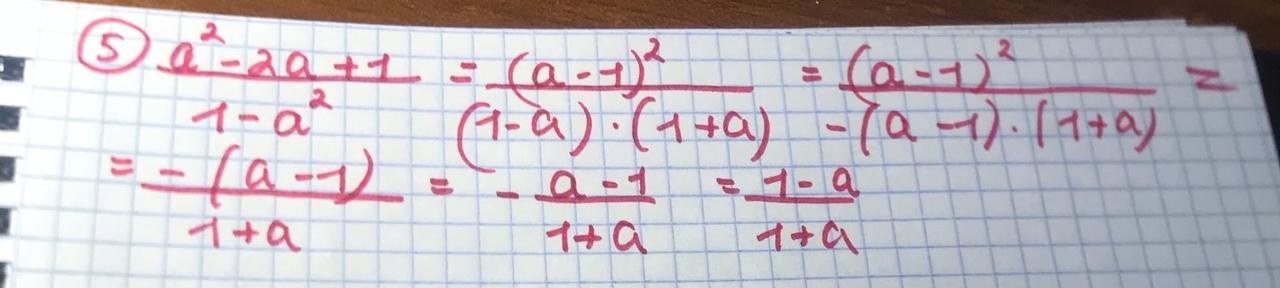 ⑤ (a² - 2a + 1)/(1 - a²) = (a - 1)²/((1 - a) · (1 + a)) = (a - 1)²/(-(a - 1) · (1 + a)) =
= (-(a - 1))/(1 + a) = - (a - 1)/(1 + a) = (1 - a)/(1 + a)